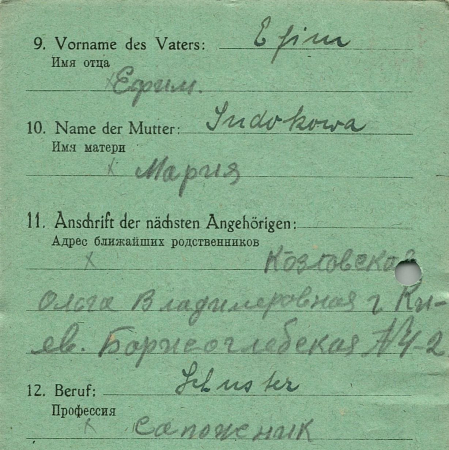 9. Vorname des Vaters: Efim
Имя отца
Ефим.
10. Name der Mutter: Sudokowa
Имя матери
Мария
11. Anschrift der nächsten Angehörigen:
Адрес ближайших родственников
Козловская
Ольга Владимеровная г Ки-
ев. Борисоглебская № 4-2
12. Beruf: Schuster
Профессия
сапожник